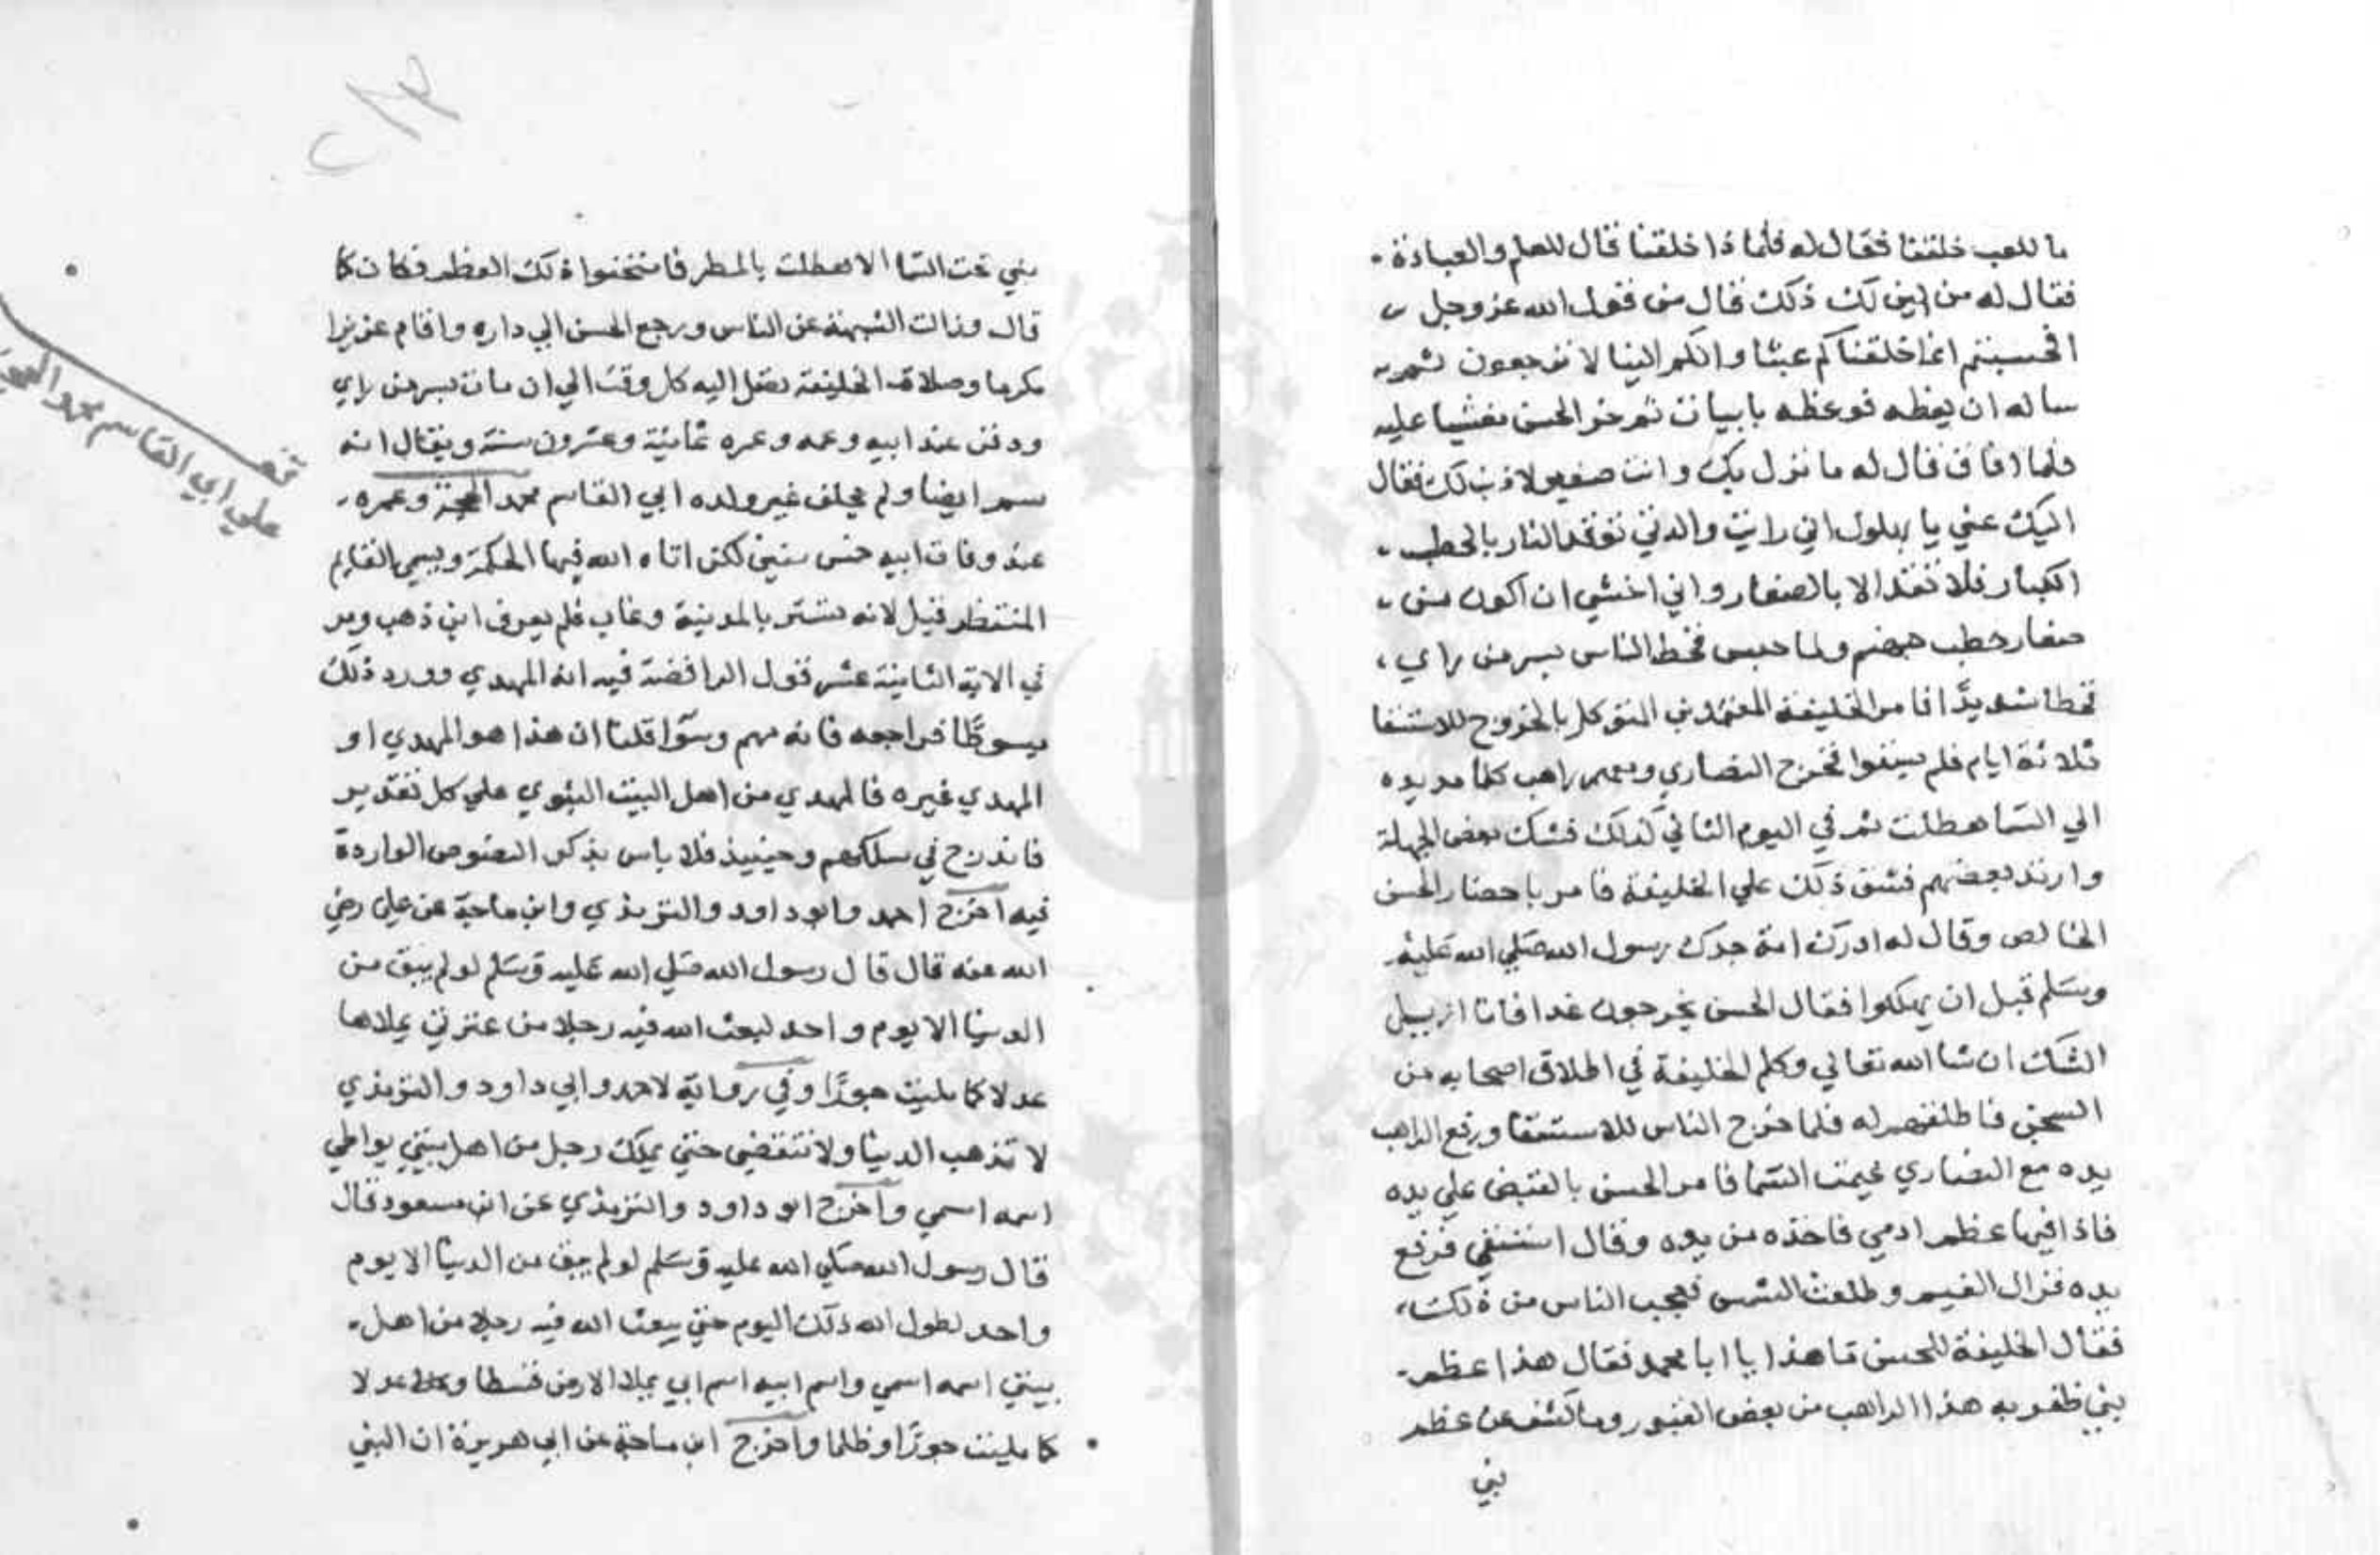 ما للعب خلقنا فقال له فلماذا خلقنا قال للعلم والعبادة
فقال له من اين لك ذلك قال من قول الله عز وجل
افحسبتم انما خلقناكم عبثا وانكم الينا لا ترجعون ثم
ساله ان يعظه فوعظه بابيات ثم خر الحسن مغشيا عليه
فلما افاق قال له ما نزل بك وانت صغير لا ذنب لك فقال
اليك عني يا بهلول اني رايت والدتي توقد النار بالحطب
الكبار فلا تقد الا بالصغار واني اخشي ان اكون من
صغار حطب جهنم ولما حبس قحط الناس بسر من راي
قحطا شديدًا فامر الخليفة المعتمد بن المتوكل بالخروج للاستسقا
ثلاثة ايام فلم يسقوا فخرج النصاري ومعهم راهب كلما مد يده
الي السما هطلت ثم في اليوم الثاني كذلك فشك بعض الجهلة
وارتد بعضهم فشق ذلك علي الخليفة فامر باحضار الحسن
الخالص وقال له ادرك امة جدك رسول الله صلي الله عليه
وسلم قبل ان يهلكوا فقال الحسن يخرجون غدا فانا ازيل
الشك ان شا الله تعالي وكلم الخليفة في اطلاق اصحابه من
السجن فاطلقهم له فلما خرج الناس للاستسقا ورفع الراهب
يده مع النصاري غيمت السما فامر الحسن بالقبض علي يده
فاذا فيها عظم ادمي فاخذه من يده وقال استسقي فرفع
يده فزال الغيم وطلعت الشمس فعجب الناس من ذلك
فقال الخليفة للحسن ما هذا يا ابا محمد فقال هذا عظم
نبي ظفر به هذا الراهب من بعض القبور وما كشف عن عظم
نبي
نبي تحت السما الا هطلت بالمطر فامتحنوا ذلك العظم فكان كما
قال وزالت الشبهة عن الناس ورجع الحسن الي داره واقام عزيزا
مكرما وصلات الخليفة تصل اليه كل وقت الي ان مات بسر من راي
ودفن عند ابيه وعمه وعمره ثمانية وعشرون سنة ويقال انه
سم ايضا ولم يخلف غير ولده ابي القاسم محمد الحجة وعمره
عند وفات ابيه خمس سنين لكن اتاه الله فيها الحكمة ويسمي القايم
المنتظر قيل لانه ستر بالمدينة وغاب فلم يعرف اين ذهب ومر
في الاية الثانية عشر قول الرافضة فيه انه المهدي وورد ذلك
مبسوطًا فراجعه فانه مهم وسوا قلنا ان هذا هو المهدي او
المهدي غيره فالمهدي من اهل البيت النبوي علي كل تقدير
فاندرج في سلكهم وحينيذ فلا باس بذكر النصوص الواردة
فيه اخرج احمد وابو داود والترمذي وابن ماجة عن علي رضي
الله عنه قال قال رسول الله صلي الله عليه وسلم لو لم يبق من
الدنيا الا يوم واحد لبعث الله فيه رجلا من عترتي يملاها
عدلا كما مليت جورًا وفي رواية لاحمد وابي داود والترمذي
لا تذهب الدنيا ولا تنقضي حتي يملك رجل من اهل بيتي يواطي
اسمه اسمي واخرج ابو داود والترمذي عن ابن مسعود قال
قال رسول الله صلي الله عليه وسلم لو لم يبق من الدنيا الا يوم
واحد لطول الله ذلك اليوم حتي يبعث الله فيه رجلا من اهل
بيتي اسمه اسمي واسم ابيه اسم ابي يملا الارض قسطا وعدلا
كما مليت جورًا وظلما واخرج ابن ماجة عن ابي هريرة ان النبي
قف
علي ابي القاسم محمد